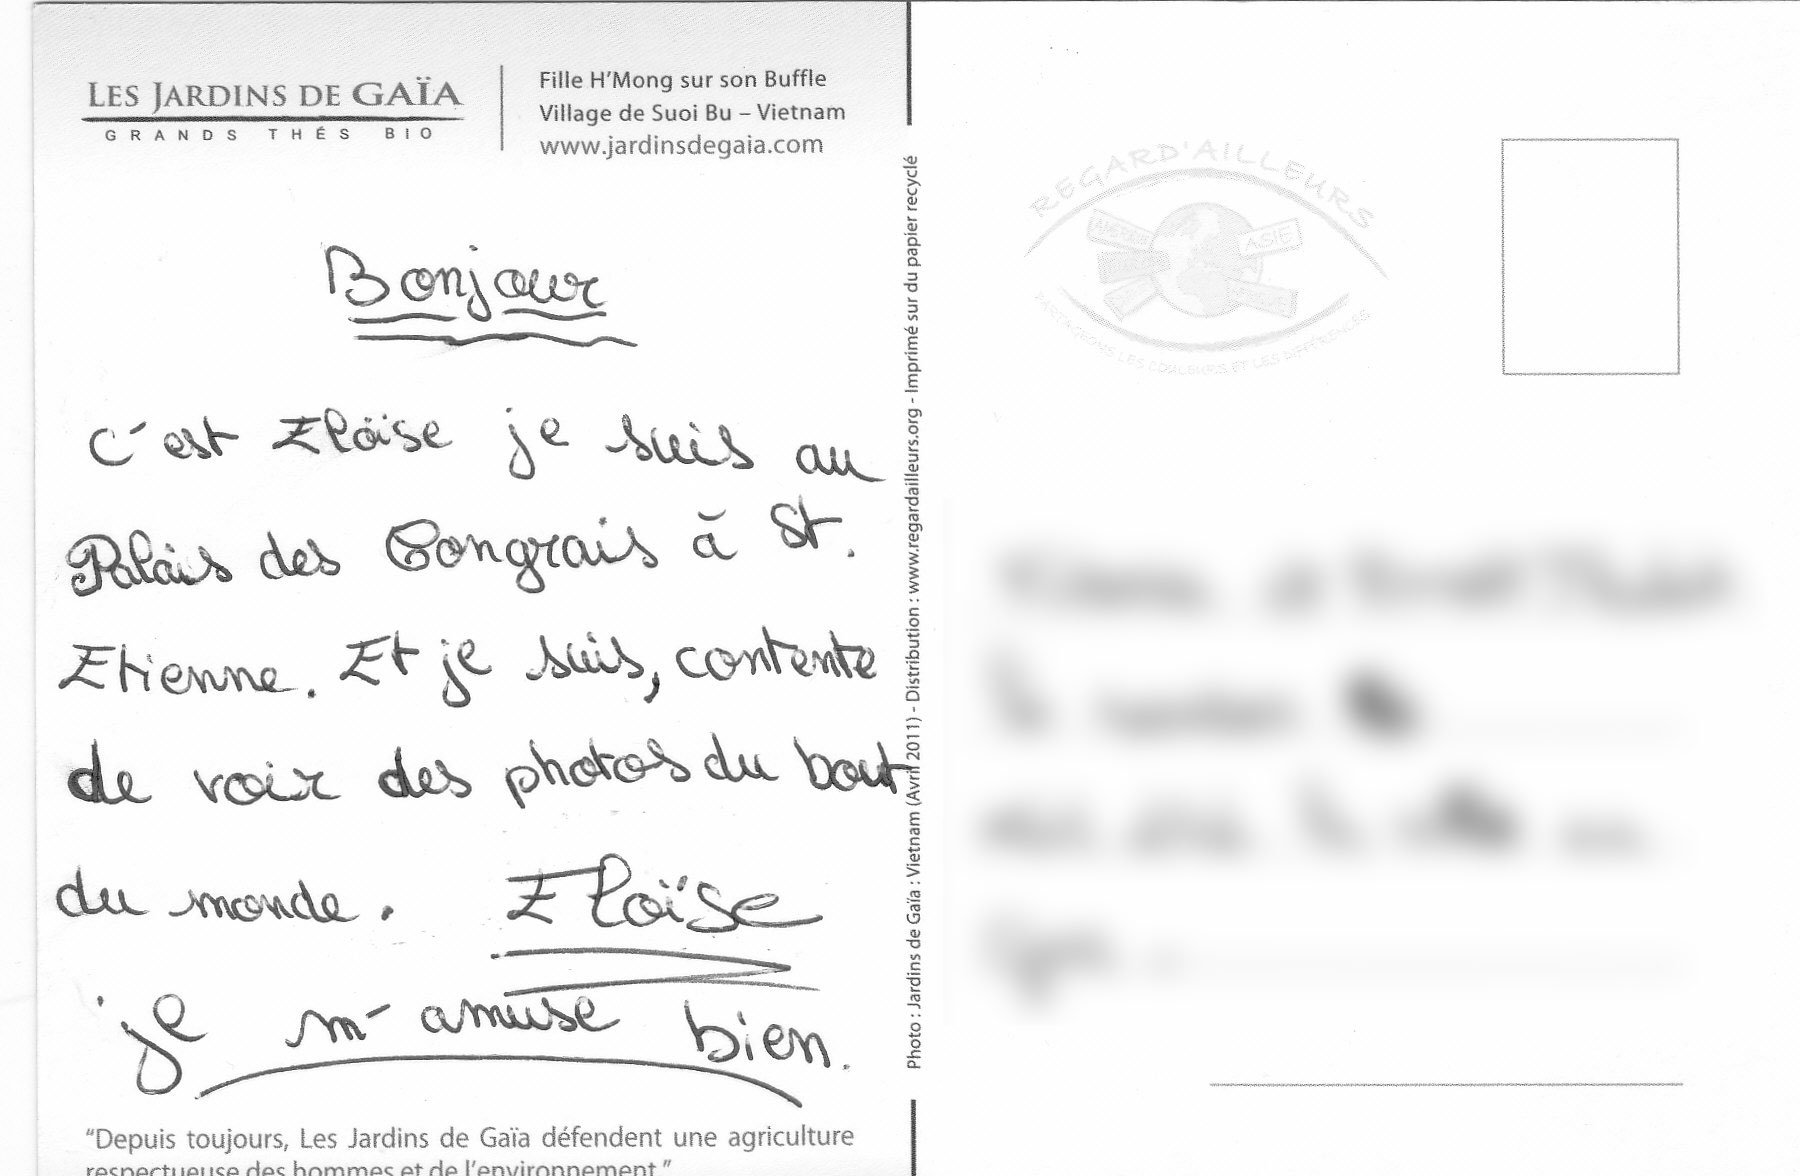 LES JARDINS DE GAÏA
GRANDS THÉS BIO
Fille H'Mong sur son Buffle
Village de Suoi Bu – Vietnam
www.jardinsdegaia.com
Bonjour
C'est Eloïse je suis au
Palais des Congrais à St.
Etienne. Et je suis, contente
de voir des photos du bout
du monde. Eloïse
je m'amuse bien.
“Depuis toujours, Les Jardins de Gaïa défendent une agriculture
respectueuse des hommes et de l'environnement.”
Photo : Jardins de Gaïa : Vietnam (Avril 2011) - Distribution : www.regardailleurs.org - Imprimé sur du papier recyclé
REGARD'AILLEURS
ASIE
PARTAGEONS LES COULEURS ET LES DIFFÉRENCES